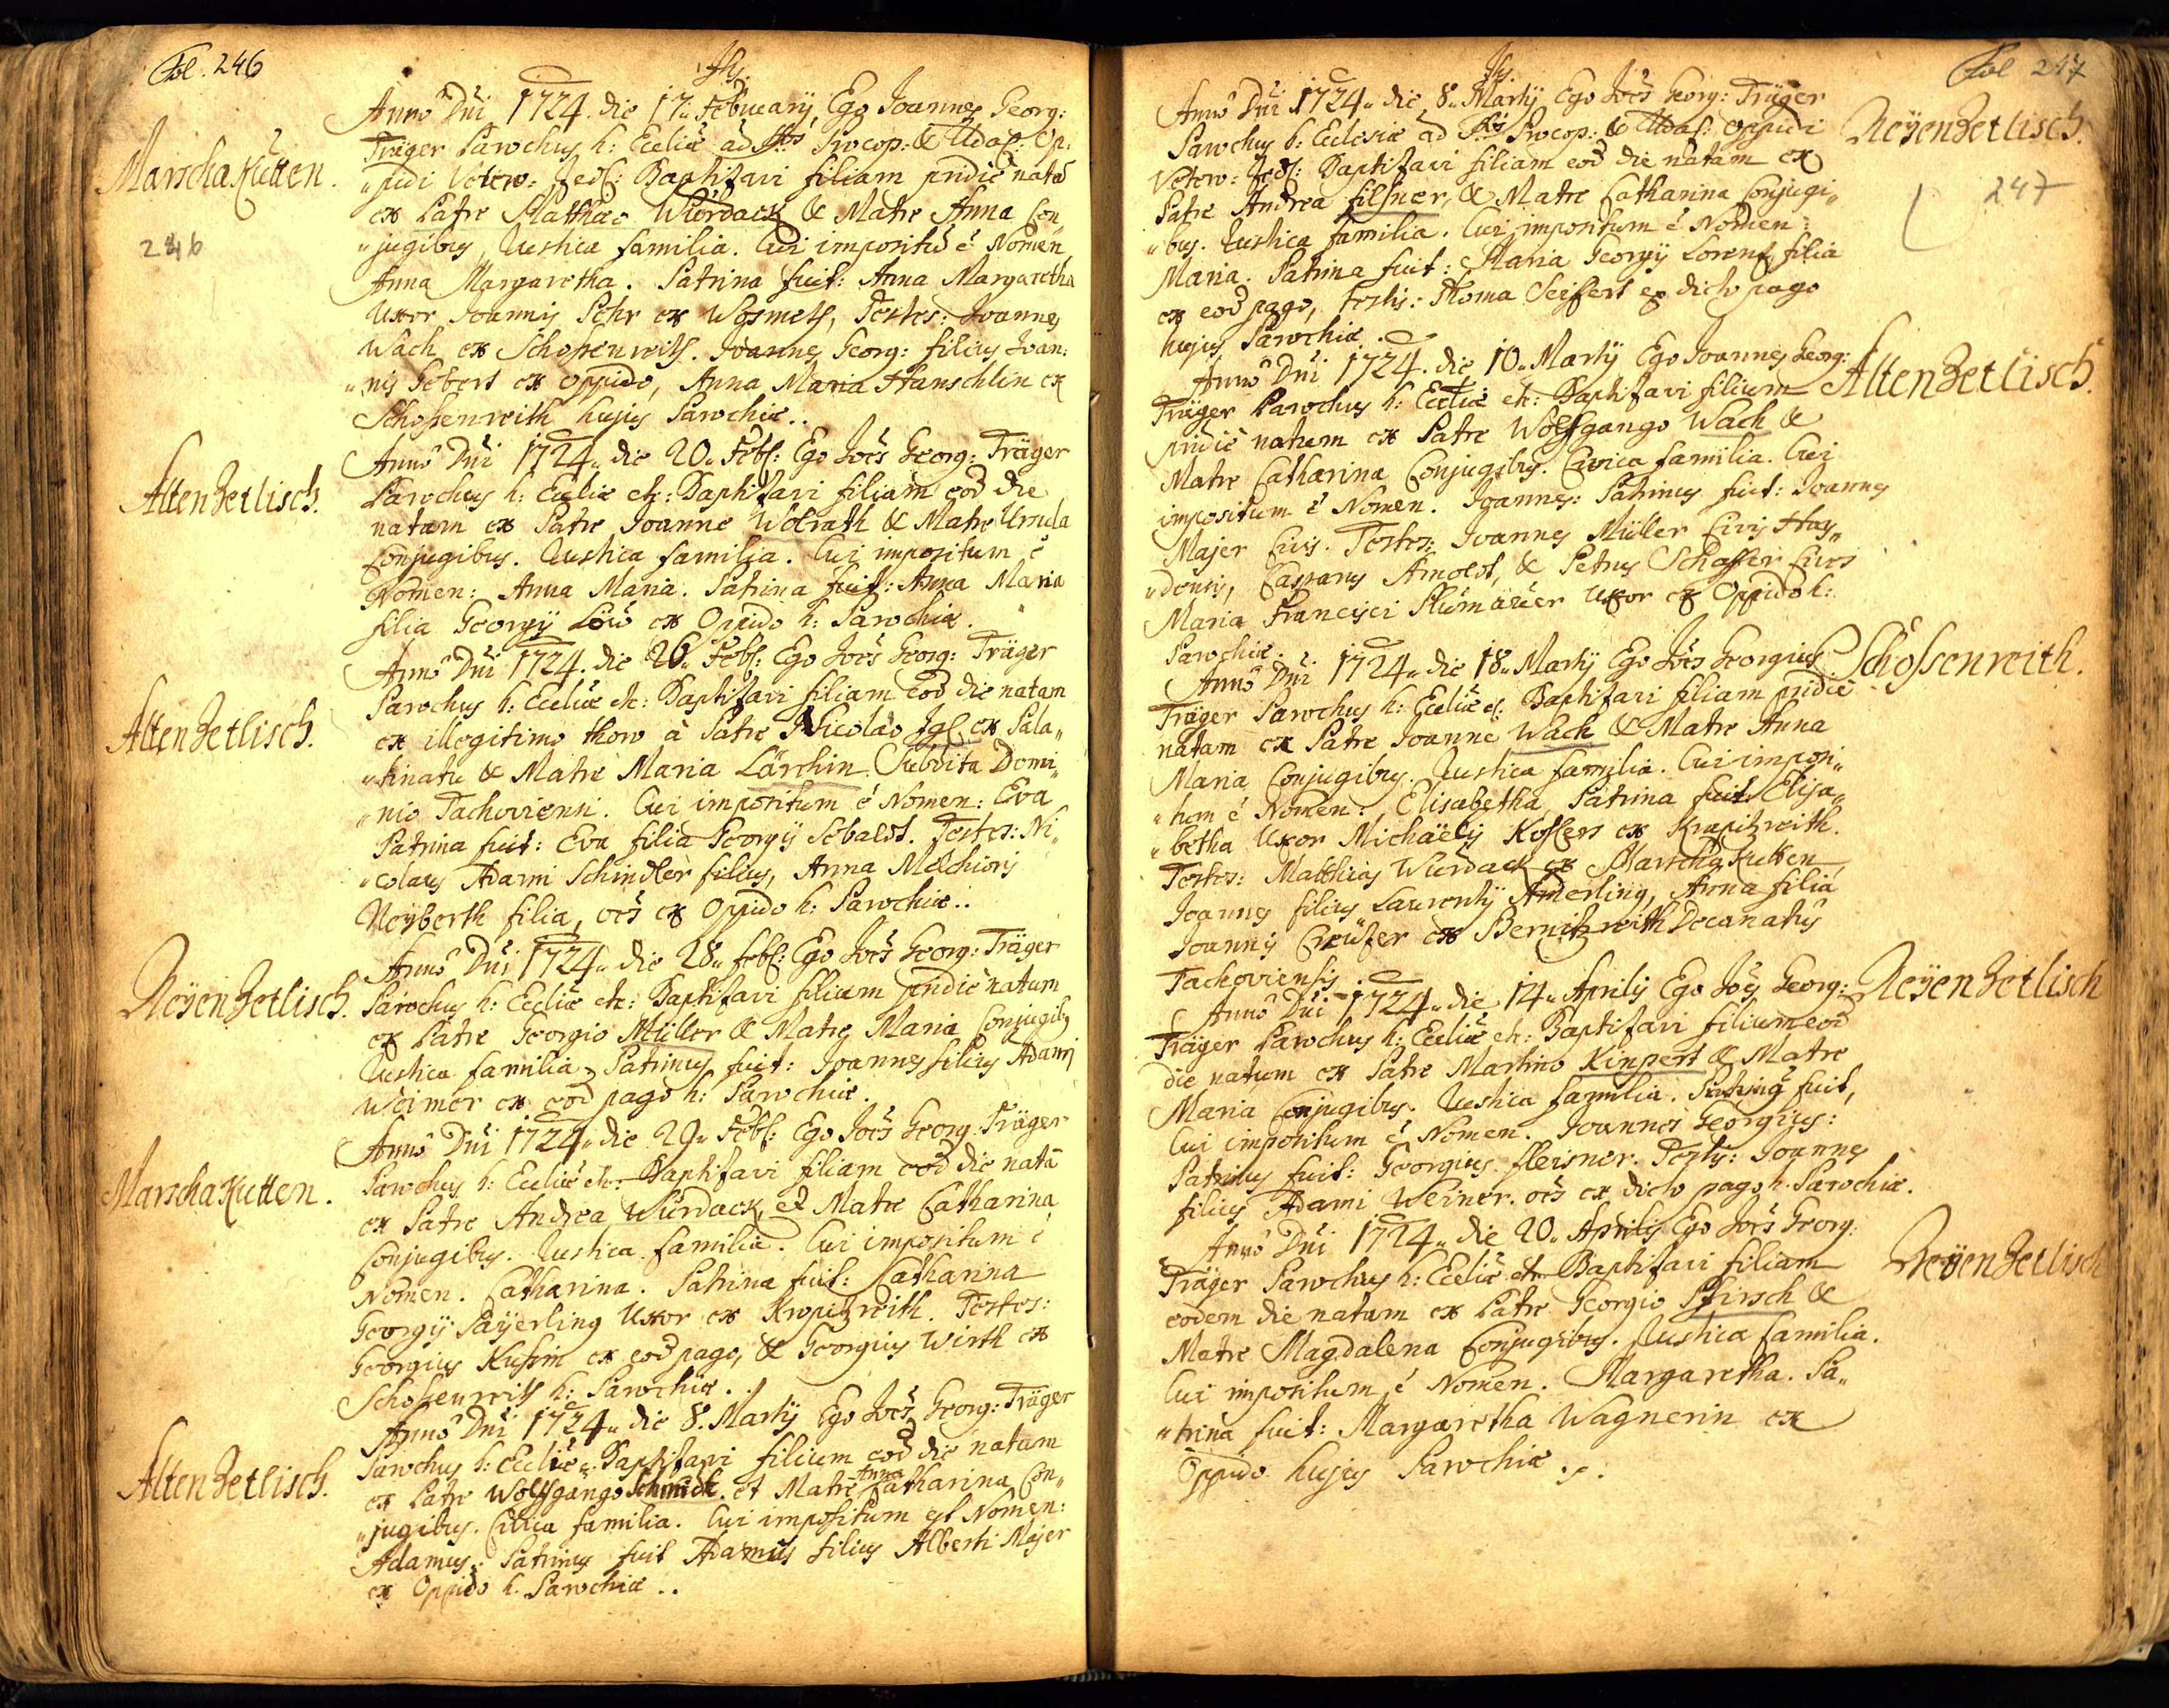 Fol. 246
Jhs.
Marschakutten.
246
Anno Dni 1724. die 17. February, Ego Joannes Georg:
Träger Parochus h: Eccliæ ad Stos Procop: & Udal: Op:
"pidi Vetero: Zedl: Baptizavi filiam pridie natã
ex Patre Matthæo Würdack & Matre Anna Con
"jugibus, Rustica familia. Cui impositũ ẽ Nomen
Anna Margaretha. Patrina fuit: Anna Margaretha
Uxor Joannis Pehr ex Wosmets, Testes: Joannes
Wach ex Schossenreith. Joannes Georg: filius Joan:
"nis Gebert ex oppido, Anna Maria Hanschlin ex
Schossenreith hujus Parochiæ..
AltenZetlisch.
Anno Dni 1724. die 20. Feb: Ego Joës Georg: Träger
Parochus h: Eccliæ etc: Baptizavi filiam eod die
natam ex Patre Joanne Wolrath & Matre Ursula
Conjugibus. Rustica familia. Cui impositum ẽ
Nomen: Anna Maria. Patrina fuit: Anna Maria
filia Georgÿ Löw ex Oppido h: Parochiæ.
AltenZetlisch.
Anno Dni 1724. die 26. Feb: Ego Joës Georg: Träger
Parochus h: Eccliæ etc: Baptizavi filiam eod die natam
ex illegitimo thoro à Patre Nicolao Igl ex Pala„
"tinatu & Matre Maria Lärchin Subdita Domi„
"nio Tachoviensi. Cui impositum ẽ Nomen: Eva
Patrina fuit: Eva filia Georgÿ Sebaldt. Testes: Ni„
"colaus Adami Schindler filius, Anna Melchioris
Neyberth filia, oẽs ex Oppido h: Parochiæ..
NeÿenZetlisch.
Anno Dni 1724. die 28. feb: Ego Joës Georg: Träger
Parochus h: Eccliæ etc: Baptizavi filium pridie natum
ex Patre Georgio Müller & Matre Maria Conjugib9
Rustica familia. Patrinus fuit: Joannes filius Adami
Weimer ex eod pago h: Parochiæ.
Marschakutten.
Anno Dni 1724. die 29. Feb: Ego Joës Georg: Träger
Parochus h: Eccliæ etc: Baptizavi filiam eod die natã
ex Patre Andrea Würdack, et Matre Catharina
Conjugibus. Rustica familia. Cui impositum ẽ
Nomen. Catharina. Patrina fuit: Catharina
Georgÿ Paÿerling Uxor ex Kropitzreith. Testes:
Georgius ex eod pago, & Georgius Wirth ex
Schossenreith h: Parochiæ.
AltenZetlisch.
Anno Dni 1724. die 8. Martÿ Ego Joës Georg: Träger
Parochus h: Eccliæ etc: Baptizavi filium eod die natum
ex Patre Wolfgango Schmidt et Matre Anna Catharina Con„
"jugibus. Civica familia. Cui impositum est Nomen:
Adamus. Patrinus fuit Adamus filius Alberti Majer
ex Oppido h. Parochiæ..
Fol 247
Jhs.
NeÿenZetlisch.
247
Anno Dni 1724. die 8. Martÿ Ego Joës Georg: Träger
Parochus h: Ecclesiæ ad Stos Procop: & Udal: oppidi
Vetero: Zedl: Baptizavi filiam eod die natam ex
Patre Andrea Filsner, & Matre Catharina Conjugi„
"bus. Rustica familia. Cui impositum ẽ Nomen:
Maria. Patrina fuit: Maria Georgÿ Lorentz filia
ex eod pago, testis: Thoma Seifert ex dicto pago
hujus Parochiæ.
AltenZetlisch.
Anno Dni 1724. die 10. Martÿ Ego Joannes Georg:
Träger Parochus h: Eccliæ etc: Baptizavi filium
pridie natum ex Patre Wolfgango Wach &
Matre Catharina Conjugibus. Civica familia. Cui
impositum ẽ Nomen. Joannes: Patrinus fuit: Joannes
Majer Civis. Testes: Joannes Müller Civis Hay„
"densis, Casparus Arnoldt, & Petrus Schaffer Cives
Maria Francisci Plümauer Uxor ex Oppido h:
Parochiæ.
Schossenreith.
Anno Dni 1724. die 18. Martÿ Ego Joës Georgius
Träger Parochus h: Eccliæ etc. Baptizavi filiam pridie
natam ex Patre Joanne Wach & Matre Anna
Maria Conjugibus. Rustica familia. Cui imposi„
"tum ẽ Nomen: Elisabetha Patrina fuit: Elisa„
"betha Uxor Michäelis Koslers ex Kropitzreith.
Testes: Matthias Würdack ex Marschakutten
Joannes filius Laurentÿ Amerling, Anna filia
Joannis Creützer ex Bernitzreith Decanatus
Tachoviensis.
NeÿenZetlisch
Anno Dni 1724. die 14. Aprilis Ego Joës Georg:
Träger Parochus h: Eccliæ etc: Baptizavi filium eod
die natum ex Patre Martino Kinpert & Matre
Maria Conjugibus. Rustica familia. Patring fuit,
Cui impositum ẽ Nomen. Joannes Georgius:
Patrinus fuit: Georgius fleisner. Testis: Joannes
filius Adami Weiner. oẽs ex dicto pago h. Parochiæ.
NeÿenZetlisch
Anno Dni 1724. die 20. Aprilis Ego Joës Georg:
Träger Parochus h: Eccliæ etc Baptizavi filiam
eodem die natam ex Patre Georgio Pfirsch &
Matre Magdalena Conjugibus. Rustica familia.
Cui impositum ẽ Nomen. Margaretha. Pa„
"trina fuit: Margaretha Wagnerin ex
Oppido hujus Parochiæ.